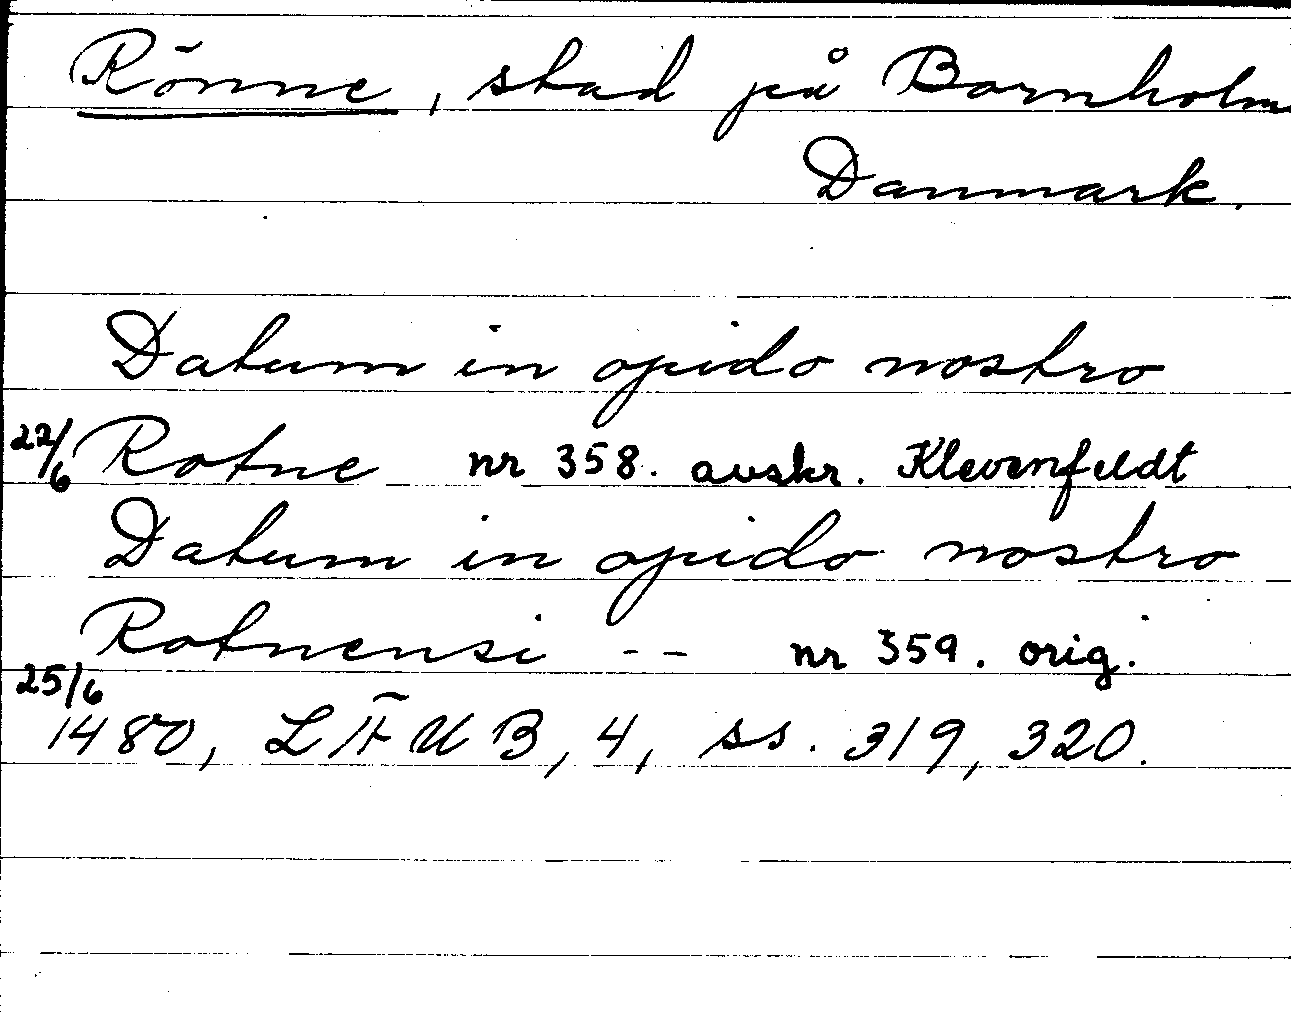 Rönne, stad på Bornholm
Danmark.
Datum in opido nostro
22/6 Rotne nr 358. avskr. Klevenfeldt
Datum in opido nostro
Rotnensi -- nr 359. orig.
25/6
1480, LÄUB, 4, ss. 319, 320.